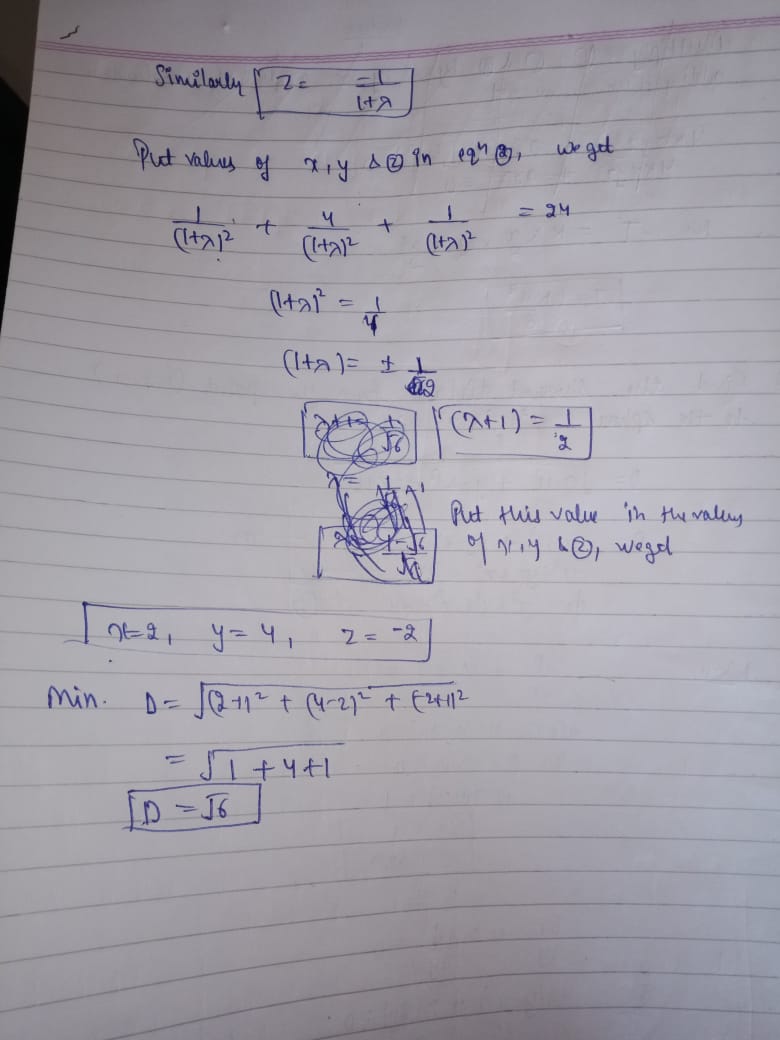 Similarly z = -1/(1+λ)
Put values of x, y & ② in eqⁿ ③, we get
1/(1+λ)² + 4/(1+λ)² + 1/(1+λ)² = 24
(1+λ)² = 1/4
(1+λ) = ± 1/2
(λ+1) = 1/2
Put this value in the values
of x, y & ②, we get
x=2, y=4, z=-2
Min. D = √(2-1)² + (4-2)² + (-2+1)²
= √1+4+1
D = √6